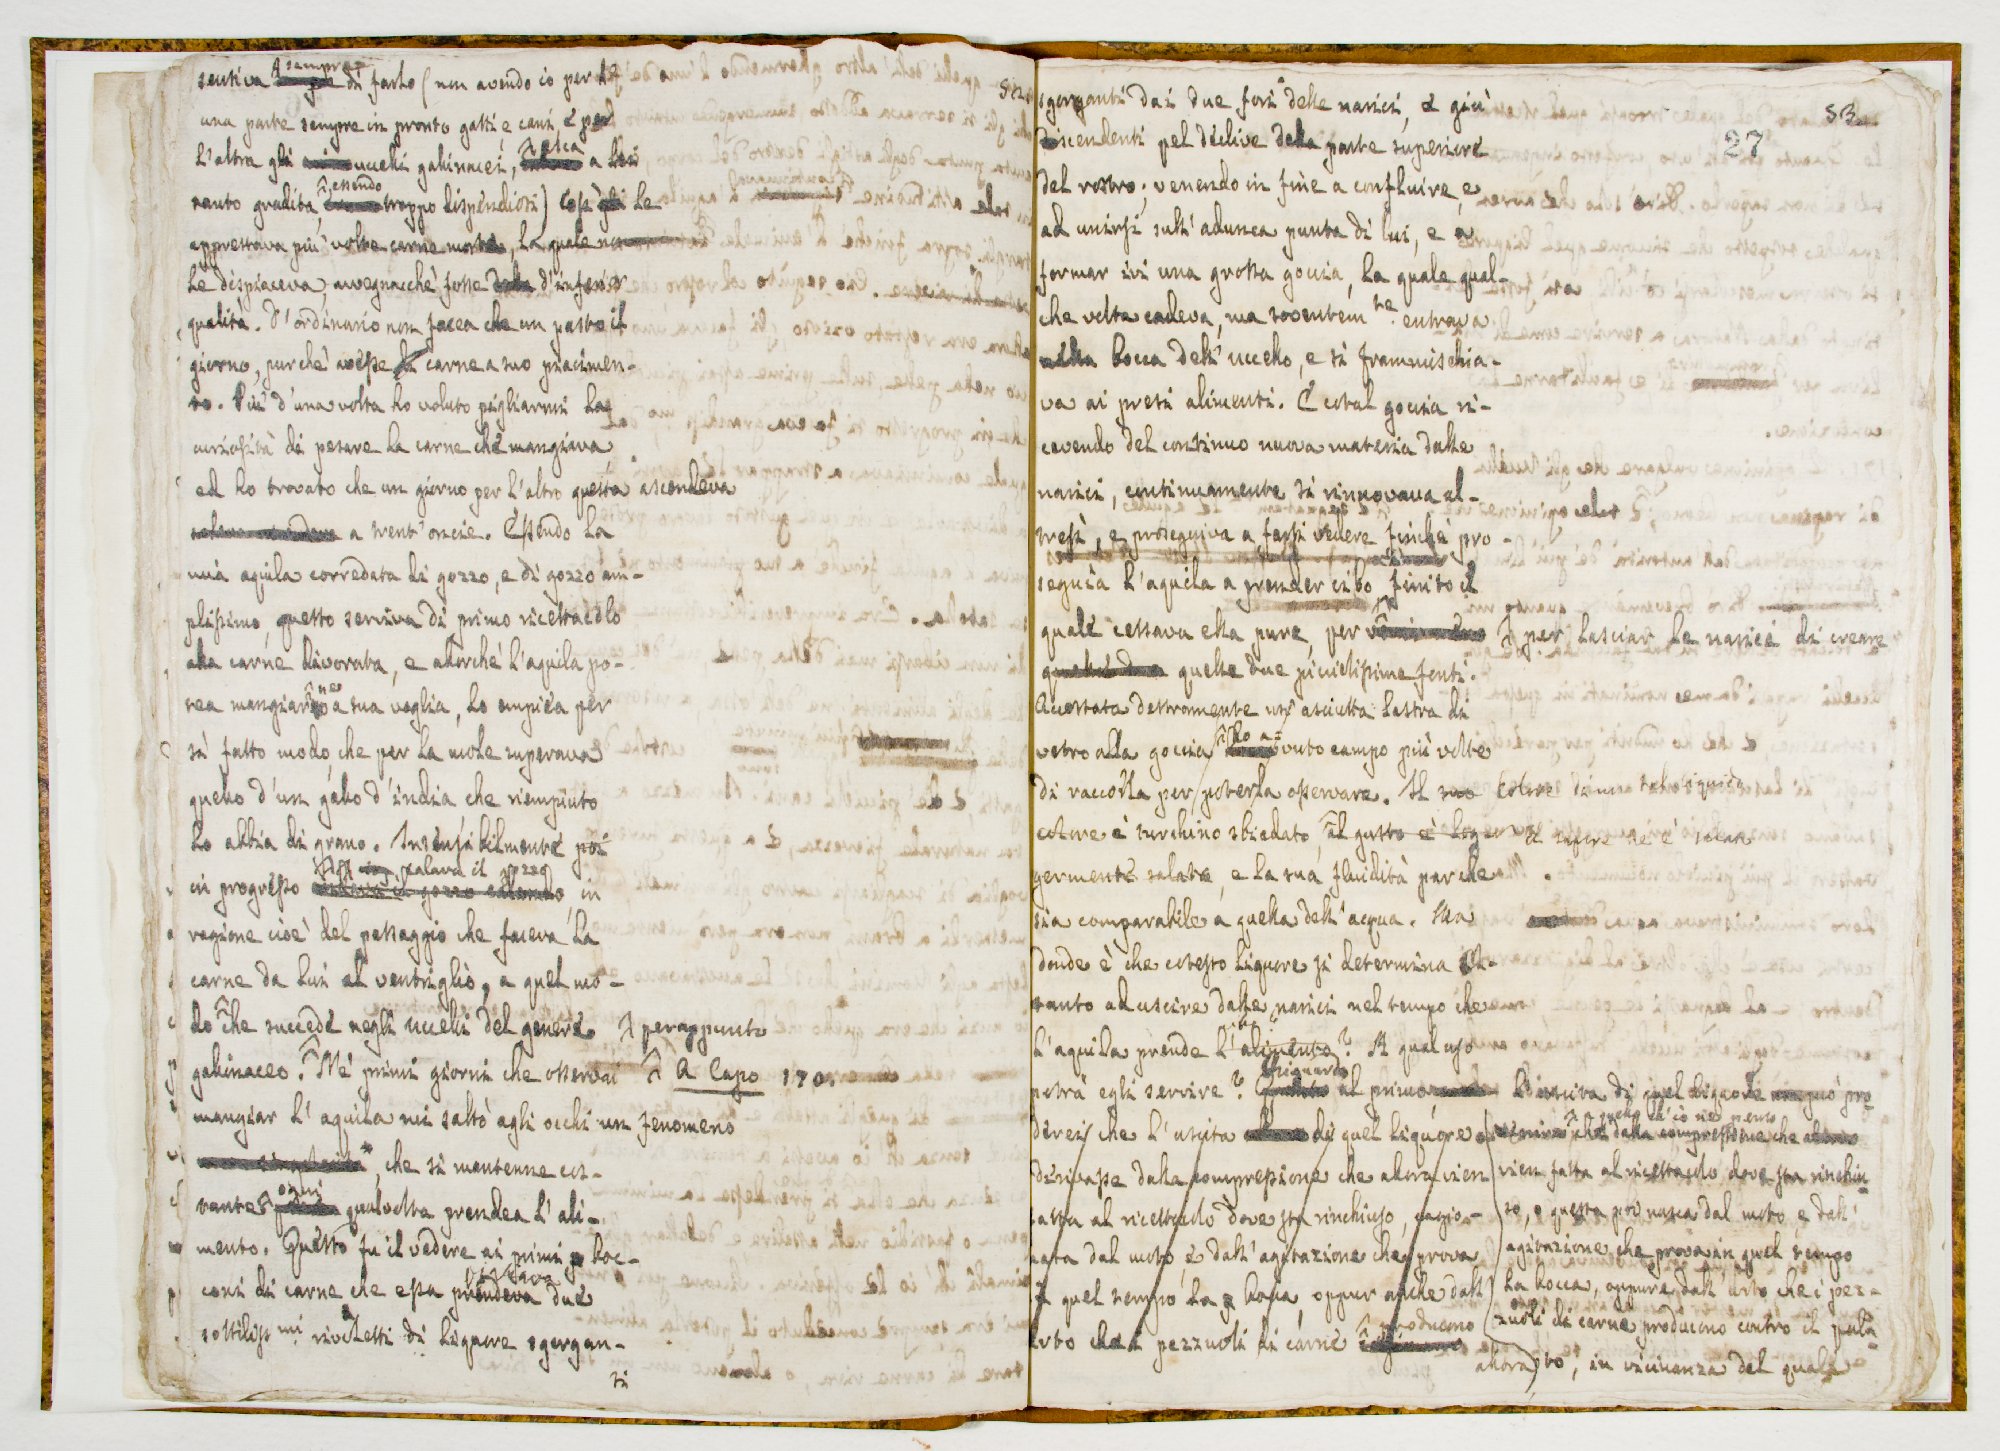 sempre
sentiva di farlo (non avendo io per
una parte sempre in pronto gatti, e cani, e per
l'altra gli uccelli gallinacei, esca a lei
tanto gradita, essendo troppo dispendiosi) Così le
apprestava più volte carne morta, la quale non
le dispiaceva, avvegnacchè fosse d'inferior
qualità. D'ordinario non facea che un pasto il
giorno, purchè avesse carne a suo piacimen-
to. Più d'una volta ho voluto pigliarmi la
curiosità di pesare la carne che mangiava
ed ho trovato che un giorno per l'altro questa ascendeva
a trent'oncie. Essendo la
mia aquila corredata di gozzo, e di gozzo am-
plissimo, questo serviva di primo ricettacolo
alla carne divorata, e allorchè l'aquila po-
tea mangiarne a sua voglia, lo empiea per
sì fatto modo, che per la mole superava
quello d'un gallo d'india che riempiuto
lo abbia di grano. Insensibilmente poi
calava il gozzo
in progresso in
ragione cioè del passaggio che faceva la
carne da lui al ventriglio, a quel mo-
do che succede negli uccelli del genere perappunto
gallinaceo. Ne' primi giorni che osservai A Capo 170.
mangiar l'aquila mi saltò agli occhi un fenomeno
che si mantenne cos-
tante ogni qualvolta prendea l'ali-
mento. Questo fu il vedere ai primi boc-
coni di carne che essa prendeva due
sottiliss mi rivoletti di liquore sgorgan-
ti
53
27
sgorganti dai due fori delle narici, e giù
discendenti pel declive della parte superiore
del rostro, venendo in fine a confluire, e
ad unirsi sull'adunca punta di lui, e a
formar ivi una grossa goccia, la quale qual-
che volta cadeva, ma sovente entrava
nella bocca dell'uccello, e si frammischia-
va ai presi alimenti. E cotal goccia ri-
cevendo del continuo nuova materia dalle
narici, continuamente si rinnovava al-
tresì, e proseguiva a farsi vedere finchè pro-
seguia l'aquila a prender cibo, finito il
quale cessava ella pure, per per lasciar le narici di creare
quelle due picciolissime fonti.
Accostata destramente un'asciutta lastra di
vetro alla goccia ho a-vuto campo più volte
di raccorla per poterla osservare. Il suo
colore è turchino sbiadato, il gusto è leg-
germente salato, e la sua fluidità par che
sia comparabile a quella dell'acqua. Ma
donde è che cotesto liquore si determina sol-
tanto ad uscire dalle narici nel tempo che
l'aquila prende l'alimento? A qual uso
potrà egli servire? Riguardo al primo
direi che l'uscita di quel liquore
derivasse dalla compressione che allora vien
fatta al ricettacolo dove sta rinchiuso, cagio-
nata dal moto, e dall'agitazione che prova
in quel tempo la bocca, oppur anche dall'
urto che i pezzuoli di carne producono
L'uscita di quel liquore può pro-
a quello ch'io ne penso
che dalla compressione che allora
vien fatta al ricettacolo dove sta rinchiu-
so, e questa poi nasca dal moto e dall'
agitazione che prova in quel tempo
la bocca, oppure dall'urto che i pez-
zuoli di carne producono contro il pala-
allora to, in vicinanza del quale